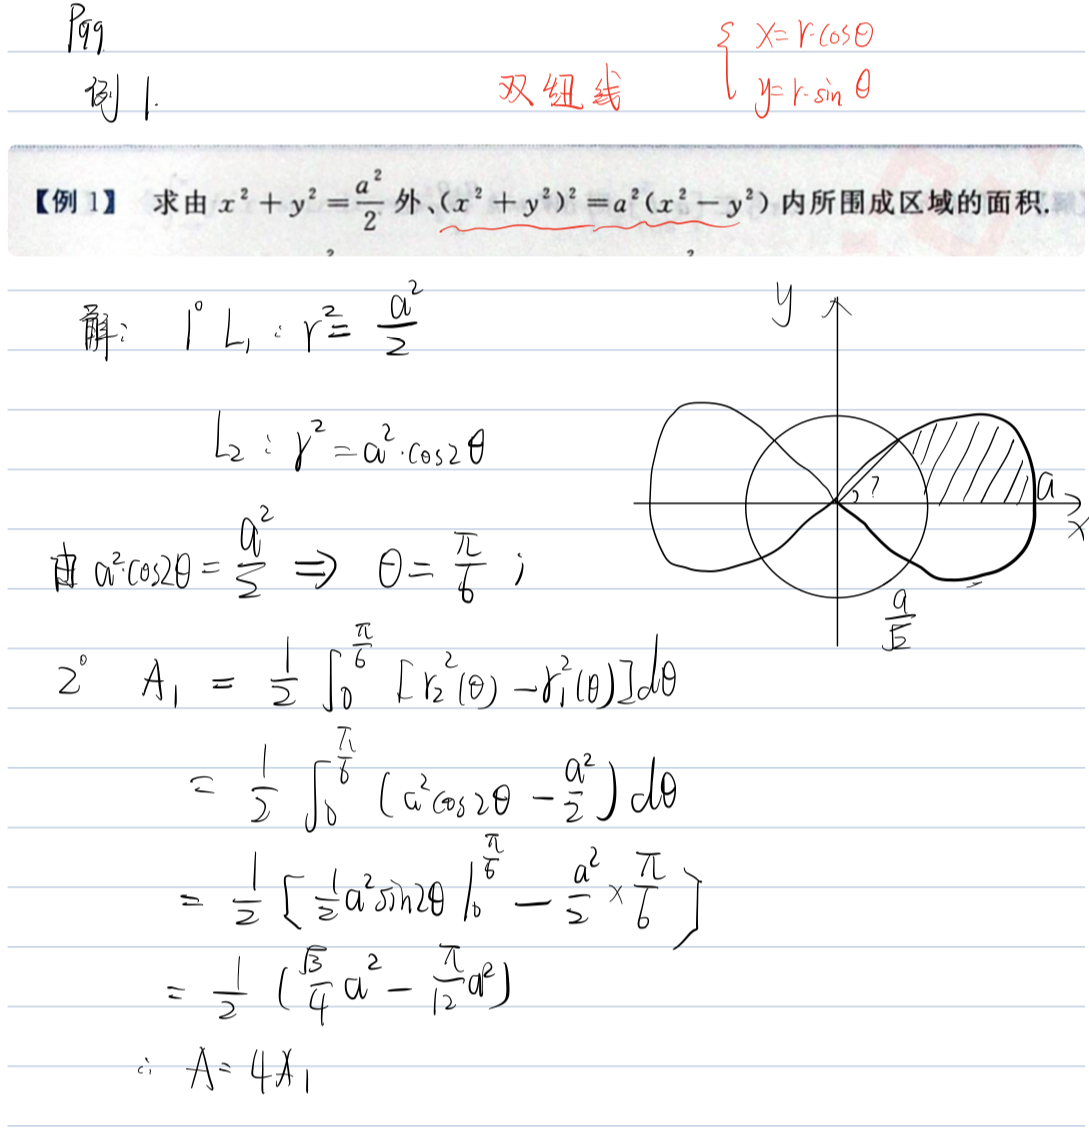 P99
例1.
双纽线
{ x=r·cosθ
y=r·sinθ
【例1】 求由 x²+y²=a²/2 外、(x²+y²)²=a²(x²-y²) 内所围成区域的面积.
解: 1° L₁: r²=a²/2
L₂: r²=a²·cos2θ
由 a²·cos2θ=a²/2 ⇒ θ=π/6 ;
y
?
a
x
a/√2
2° A₁ = 1/2 ∫₀^(π/6) [r₂²(θ)-r₁²(θ)]dθ
= 1/2 ∫₀^(π/6) (a²cos2θ - a²/2) dθ
= 1/2 [1/2 a²sin2θ |₀^(π/6) - a²/2 × π/6]
= 1/2 (√3/4 a² - π/12 a²)
∴ A=4A₁